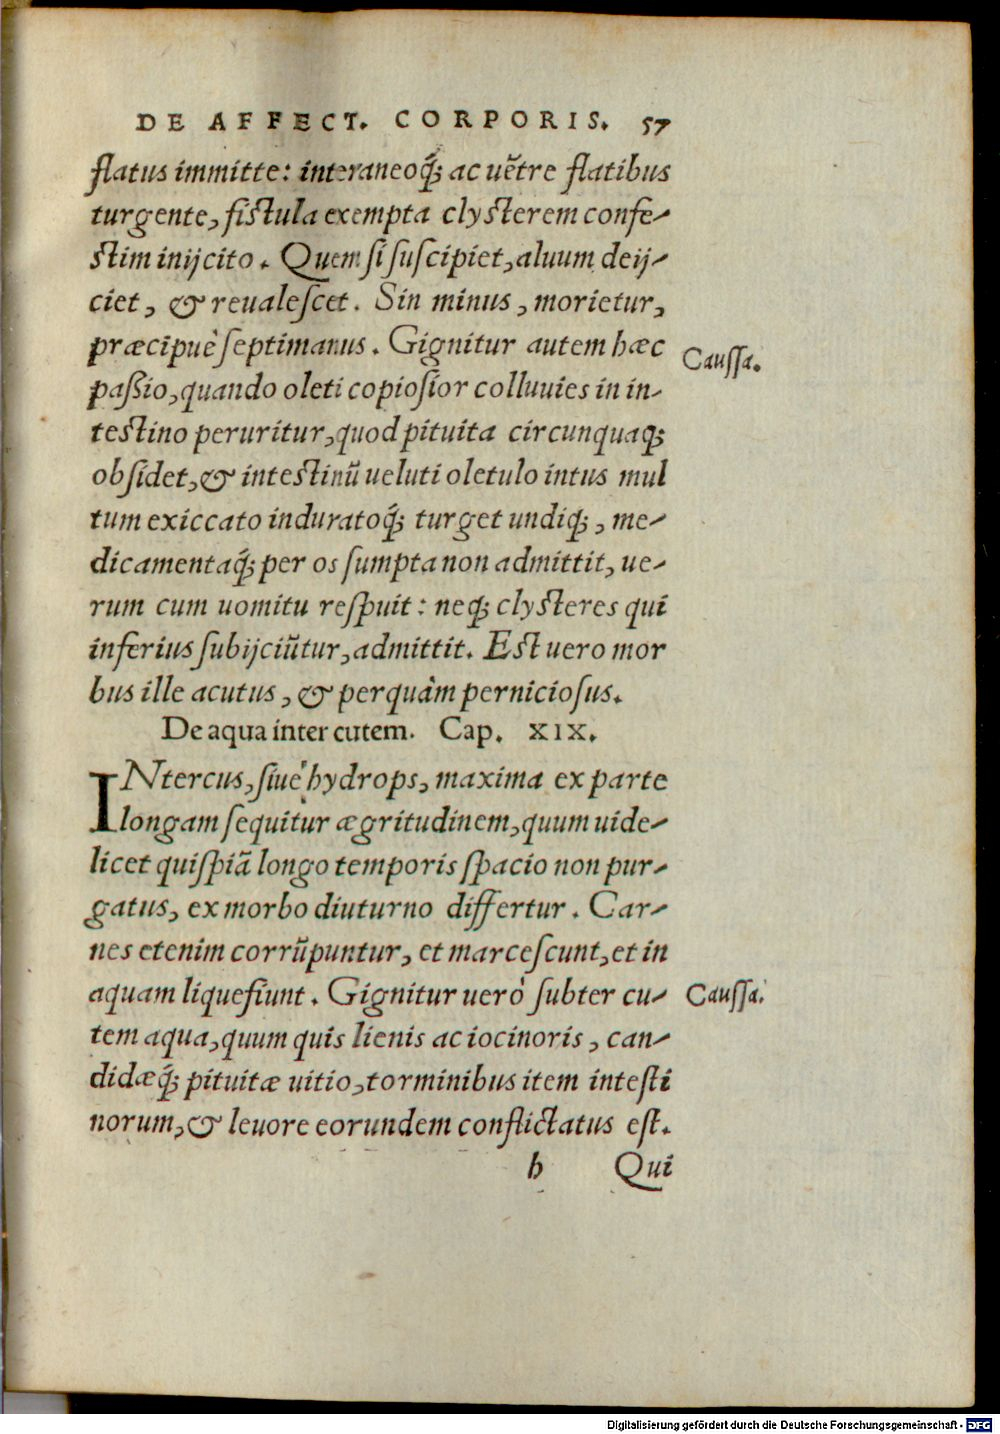 DE AFFECT. CORPORIS. 57
flatus immitte: interaneoq́; ac uẽtre flatibus
turgente, fistula exempta clysterem confe-
stim inijcito. Quem si suscipiet, aluum deij-
ciet, & reualescet. Sin minus, morietur,
præcipuè septimanus. Gignitur autem hæc
Caussa.
passio, quando oleti copiosior colluuies in in-
testino peruritur, quod pituita circunquaq;
obsidet, & intestinũ ueluti oletulo intus mul
tum exiccato induratoq́; turget undiq;, me-
dicamentaq́; per os sumpta non admittit, ue-
rum cum uomitu respuit: neq; clysteres qui
inferius subijciũtur, admittit. Est uero mor
bus ille acutus, & perquàm perniciosus.
De aqua inter cutem. Cap. XIX.
INtercus, siue hydrops, maxima ex parte
longam sequitur ægritudinem, quum uide-
licet quispiã longo temporis spacio non pur-
gatus, ex morbo diuturno differtur. Car-
nes etenim corrũpuntur, et marcescunt, et in
aquam liquefiunt. Gignitur uerò subter cu-
Caussa.
tem aqua, quum quis lienis ac iocinoris, can-
didæq́; pituitæ uitio, torminibus item intesti
norum, & leuore eorundem conflictatus est.
h Qui
Digitalisierung gefördert durch die Deutsche Forschungsgemeinschaft - DFG